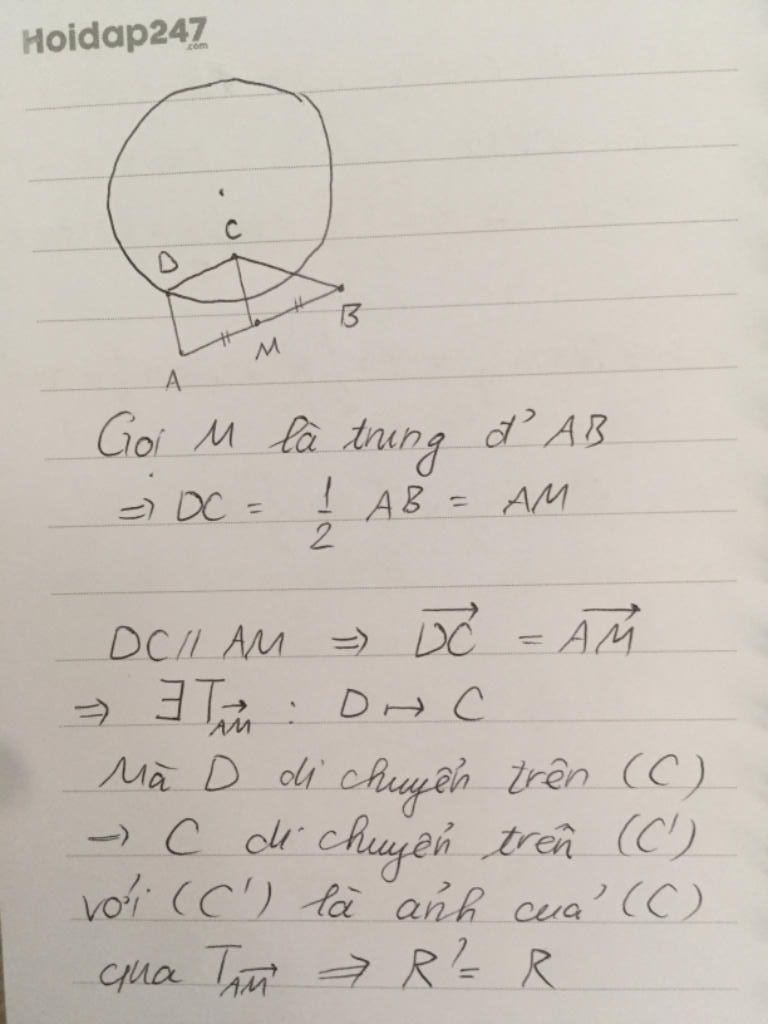 Hoidap247
.com
D
C
B
M
A
Gọi M là trung đ' AB
=> DC = 1/2 AB = AM
DC // AM => \overrightarrow{DC} = \overrightarrow{AM}
=> ∃ T_{\overrightarrow{AM}} : D ↦ C
Mà D di chuyển trên (C)
→ C di chuyển trên (C')
với (C') là ảnh của (C)
qua T_{\overrightarrow{AM}} => R' = R